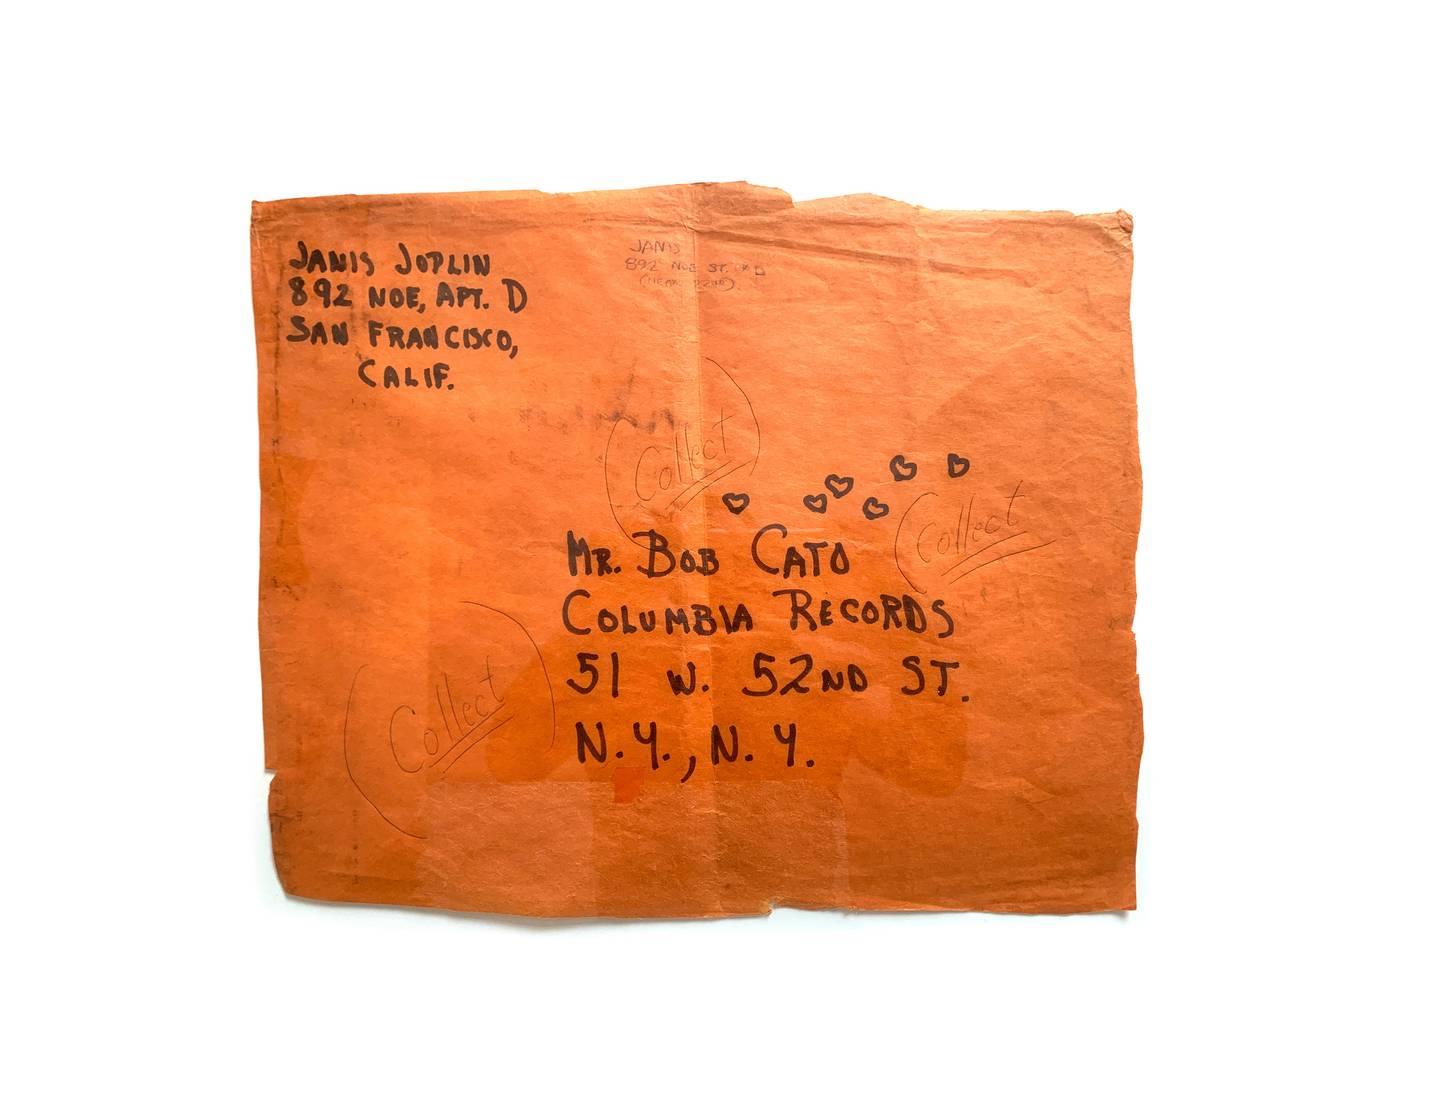 JANIS JOPLIN
892 NOE, APT. D
SAN FRANCISCO,
CALIF.
JANIS
892 NOE ST. # D
(NEAR 22ND)
Collect
Collect
MR. BOB CATO
COLUMBIA RECORDS
51 W. 52ND ST.
N.Y., N.Y.
Collect